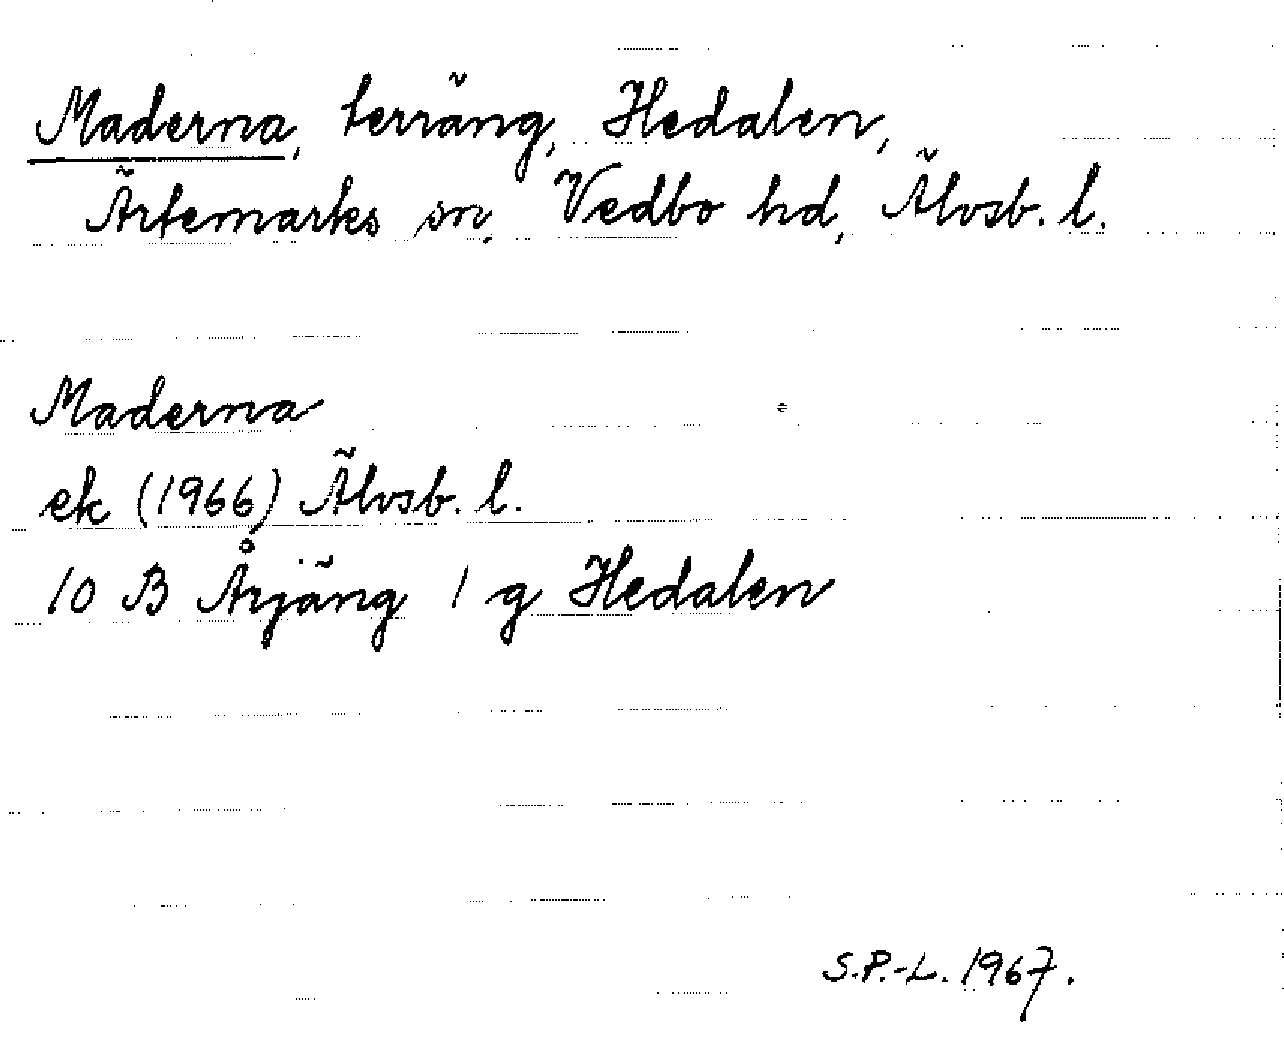 Maderna, terräng, Hedalen,
Ärtemarks sn, Vedbo hd, Älvsb. l.
Maderna
ek (1966) Älvsb. l.
10 B Årjäng 1 g Hedalen
S.P.-L. 1967.